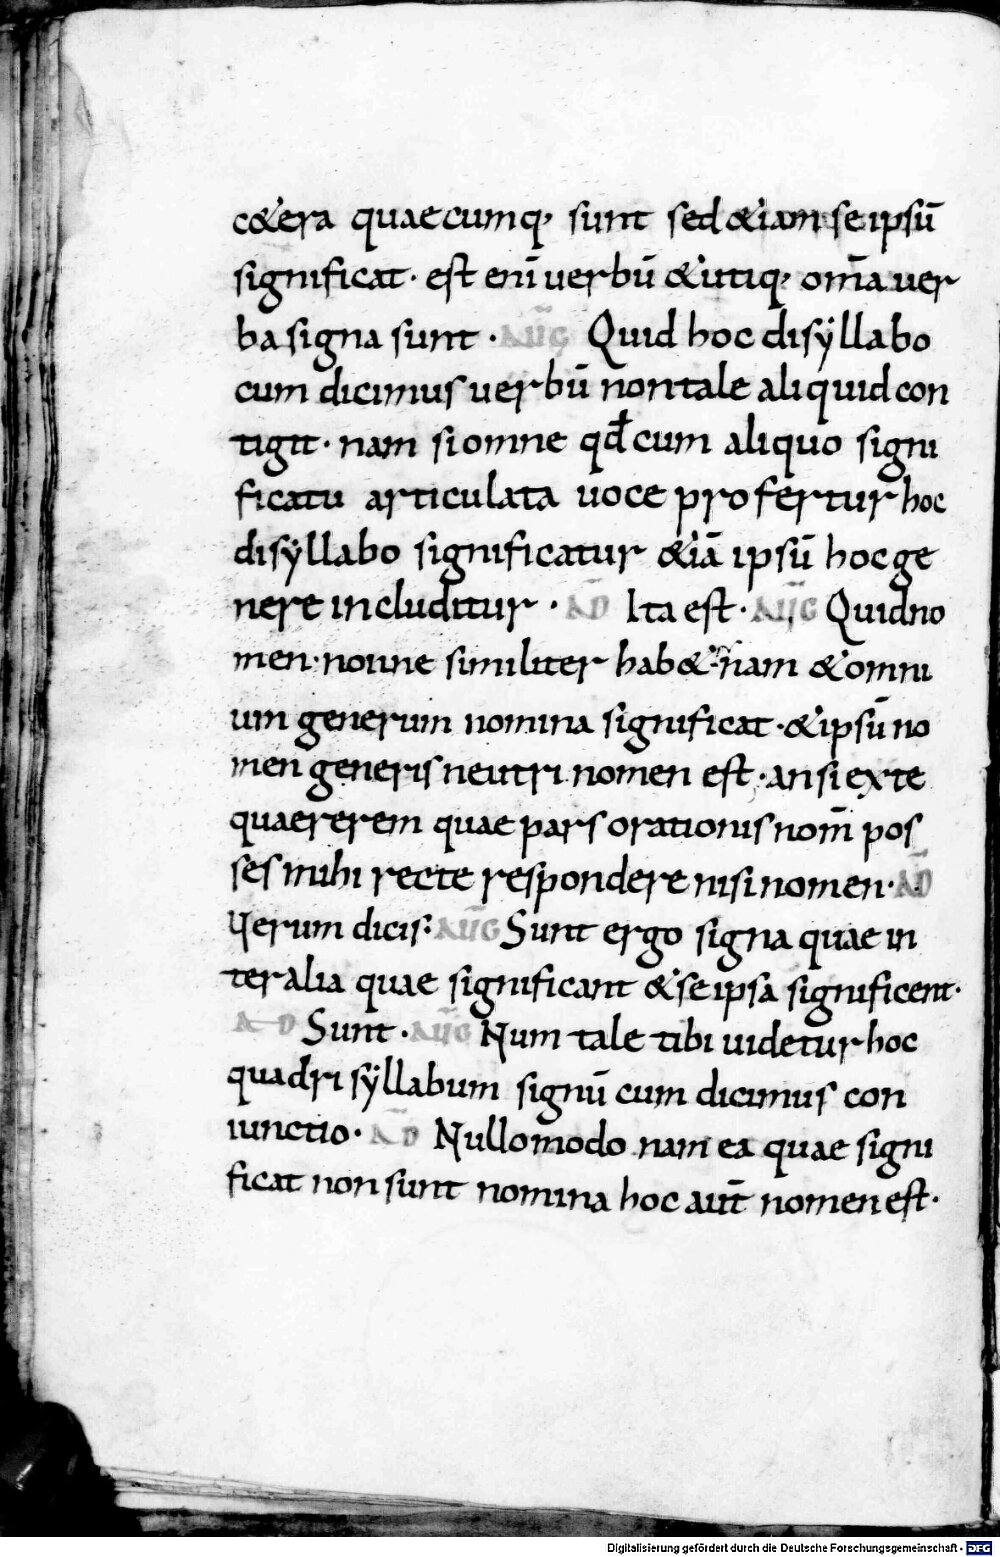 c&era quaecumq; sunt sed &iam se ipsū
significat · est enī uerbū & utiq; om̄a uer
ba signa sunt · AUḠ Quid hoc disyllabo
cum dicimus uerbū non tale aliquid con
tigit · nam si omne qd̄ cum aliquo signi
ficatu articulata uoce profertur hoc
disyllabo significatur &iā ipsū hoc ge
nere includitur · AD̄ Ita est · AUḠ Quid no
men · nonne similiter hab& · nam & omni
um generum nomina significat · & ipsū no
men generis neutri nomen est · an si ex te
quaererem quae pars orationis nom̄ pos
ses mihi recte respondere nisi nomen · AD̄
Uerum dicis : AUḠ Sunt ergo signa quae in
ter alia quae significant & se ipsa significent ·
AD Sunt · AUḠ Num tale tibi uidetur hoc
quadrisyllabum signū cum dicimus con
iunctio · AD̄ Nullo modo nam ea quae signi
ficat non sunt nomina hoc aut̄ nomen est ·
Digitalisierung gefördert durch die Deutsche Forschungsgemeinschaft - DFG